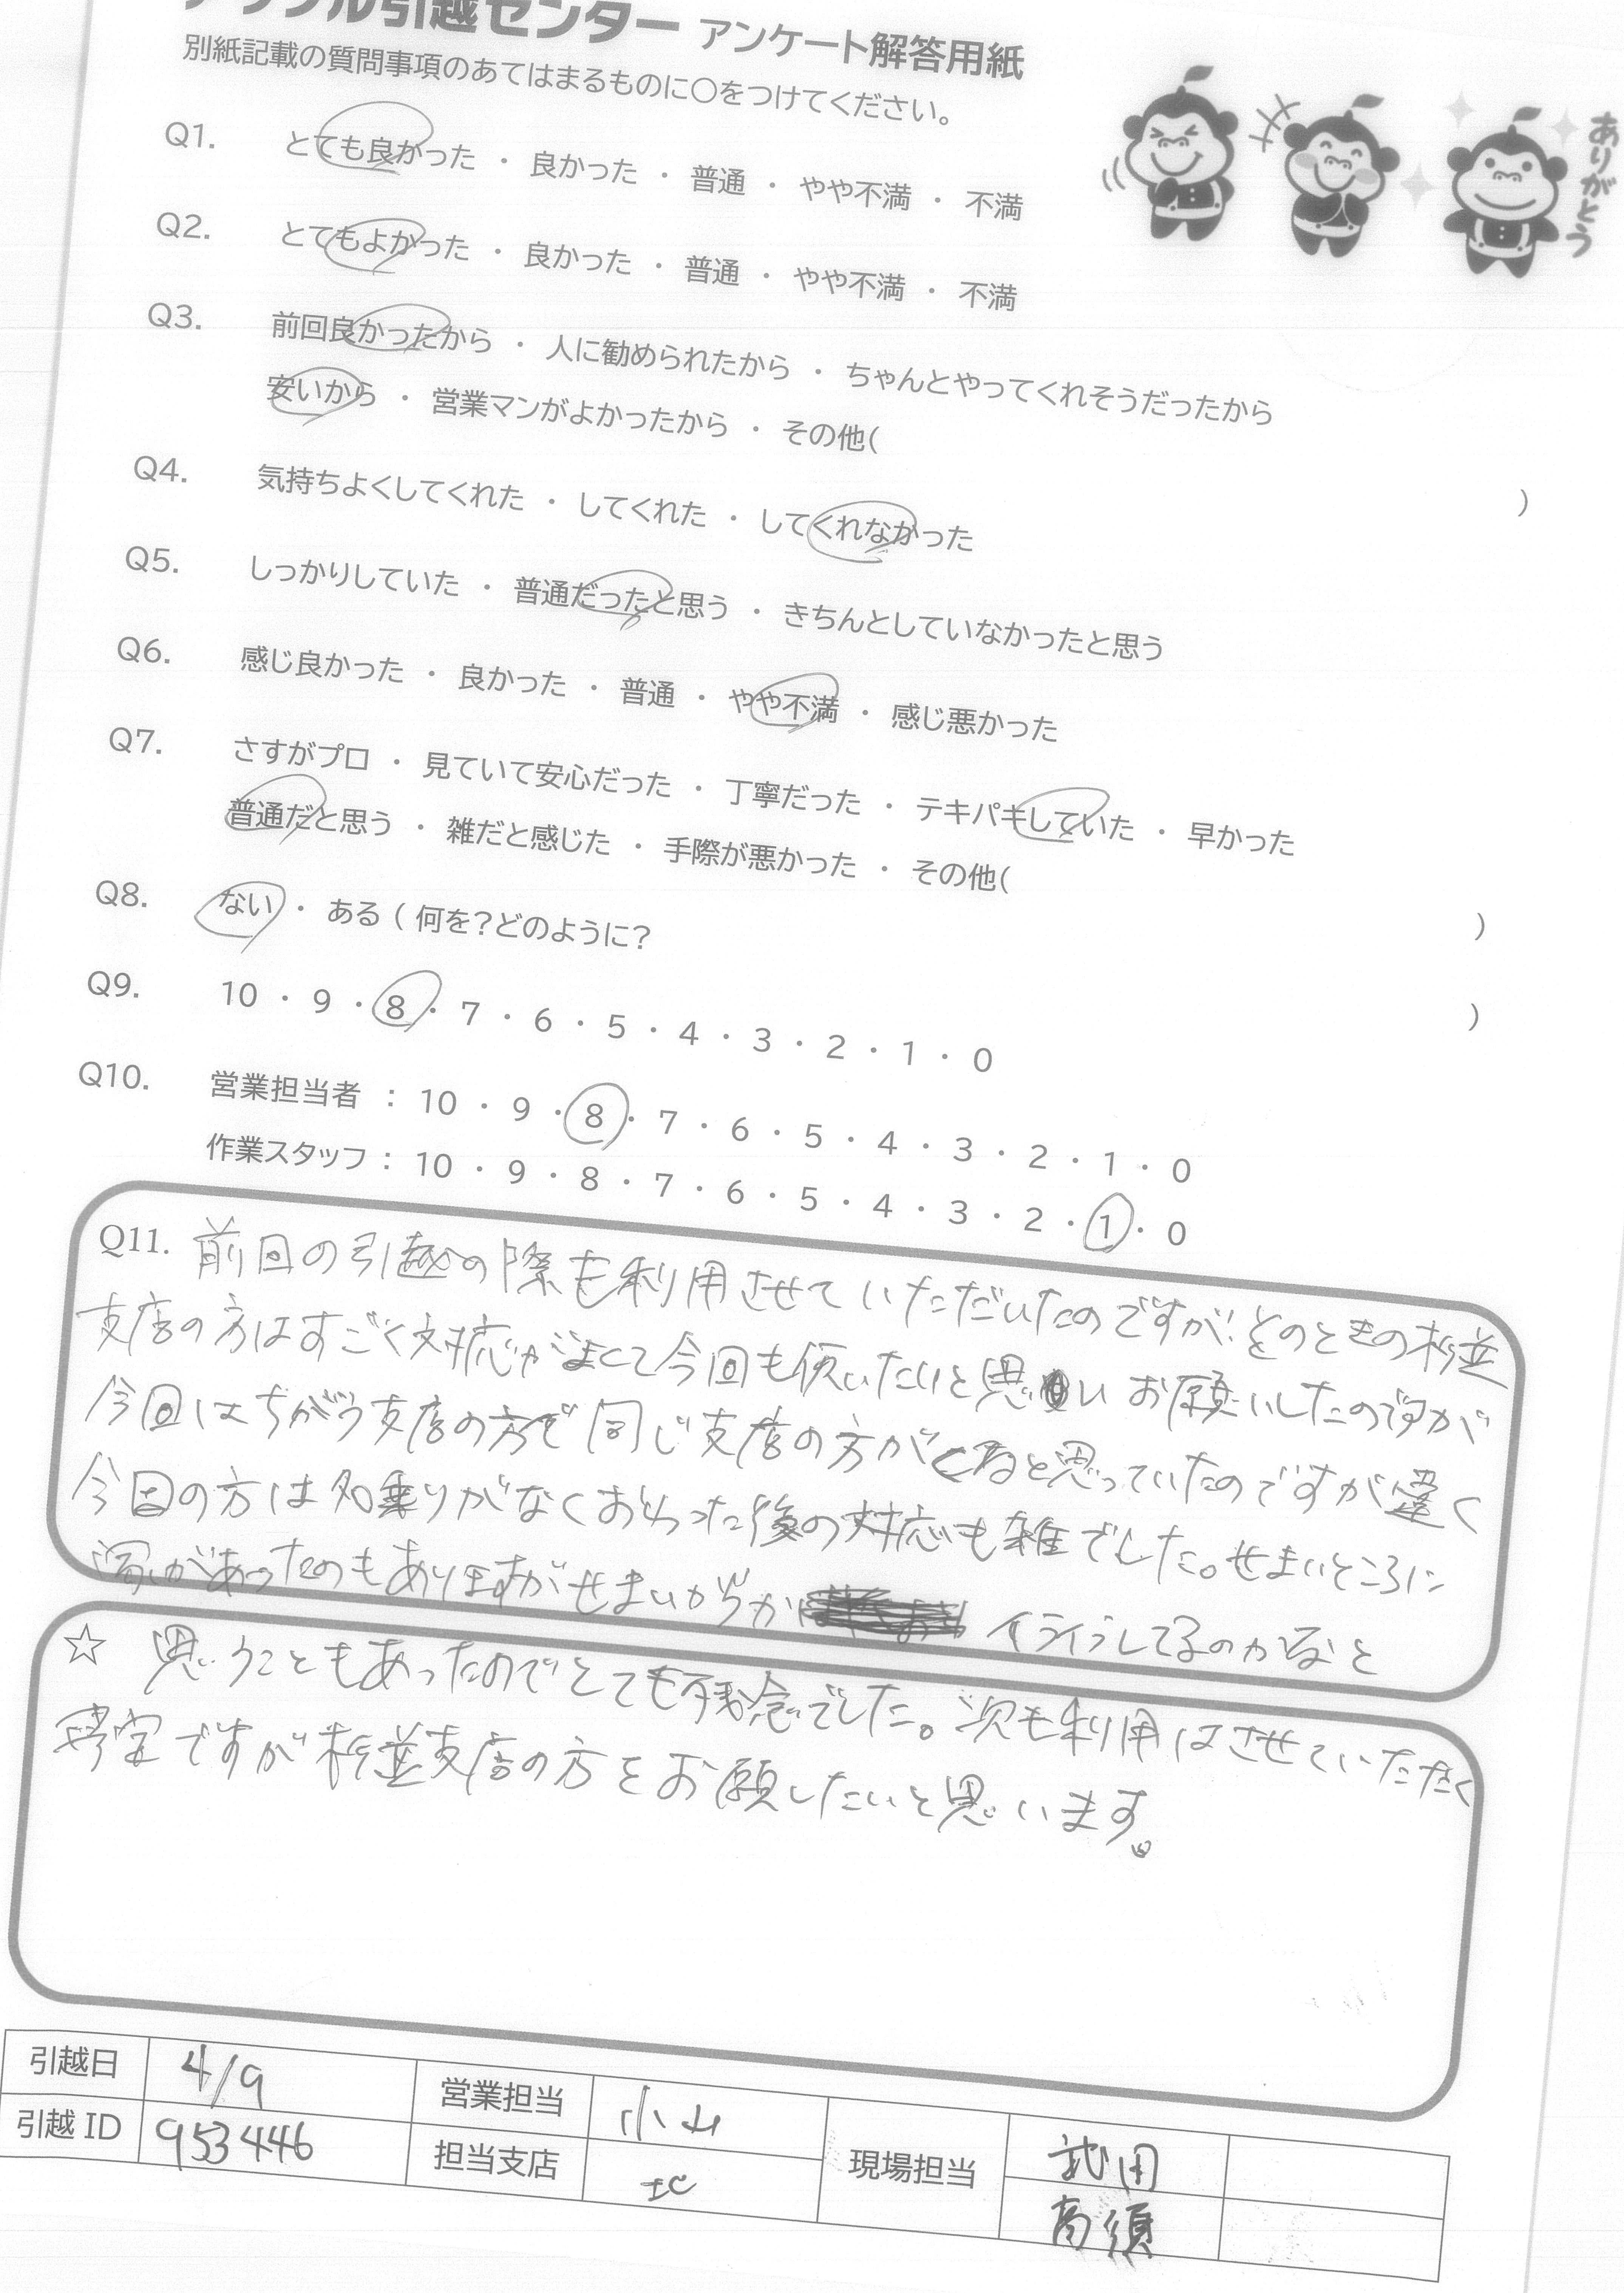 アップル引越センター アンケート解答用紙
別紙記載の質問事項のあてはまるものに○をつけてください。
ありがとう
Q1. とても良かった ・ 良かった ・ 普通 ・ やや不満 ・ 不満
Q2. とてもよかった ・ 良かった ・ 普通 ・ やや不満 ・ 不満
Q3. 前回良かったから ・ 人に勧められたから ・ ちゃんとやってくれそうだったから
安いから ・ 営業マンがよかったから ・ その他( )
Q4. 気持ちよくしてくれた ・ してくれた ・ してくれなかった
Q5. しっかりしていた ・ 普通だったと思う ・ きちんとしていなかったと思う
Q6. 感じ良かった ・ 良かった ・ 普通 ・ やや不満 ・ 感じ悪かった
Q7. さすがプロ ・ 見ていて安心だった ・ 丁寧だった ・ テキパキしていた ・ 早かった
普通だと思う ・ 雑だと感じた ・ 手際が悪かった ・ その他( )
Q8. ない ・ ある ( 何を?どのように? )
Q9. 10 ・ 9 ・ 8 ・ 7 ・ 6 ・ 5 ・ 4 ・ 3 ・ 2 ・ 1 ・ 0
Q10. 営業担当者 : 10 ・ 9 ・ 8 ・ 7 ・ 6 ・ 5 ・ 4 ・ 3 ・ 2 ・ 1 ・ 0
作業スタッフ : 10 ・ 9 ・ 8 ・ 7 ・ 6 ・ 5 ・ 4 ・ 3 ・ 2 ・ 1 ・ 0
Q11. 前回の引越の際も利用させていただいたのですが、そのときの杉並
支店の方はすごく対応がよくて今回も使いたいと思い お願いしたのですが
今回はちがう支店の方で同じ支店の方がくると思っていたのですが違く
今回の方は名乗りがなくおわった後の対応も雑でした。せまいところに
窓があったのもありますがせまいからか イライラしてるのかなと
☆ 思うこともあったのでとても残念でした。次も利用はさせていただく
予定ですが杉並支店の方をお願したいと思います。
引越日 4/9 営業担当 小山 現場担当 武田
引越 ID 953446 担当支店 北 高須